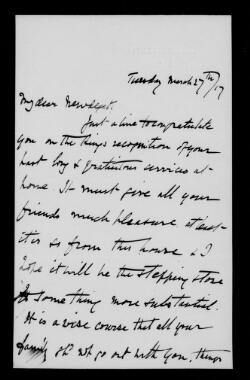 Tuesday March 27th/17
My dear Newdegate.
Just a line to congratulate
you on the King's recognition of your
past long & gratuitous services at
home It must give all your
friends much pleasure at least
it is so from this house & I
hope it will be the stepping stone
to something more substantial.
It is a wise course that all your
family did not go out with you, things